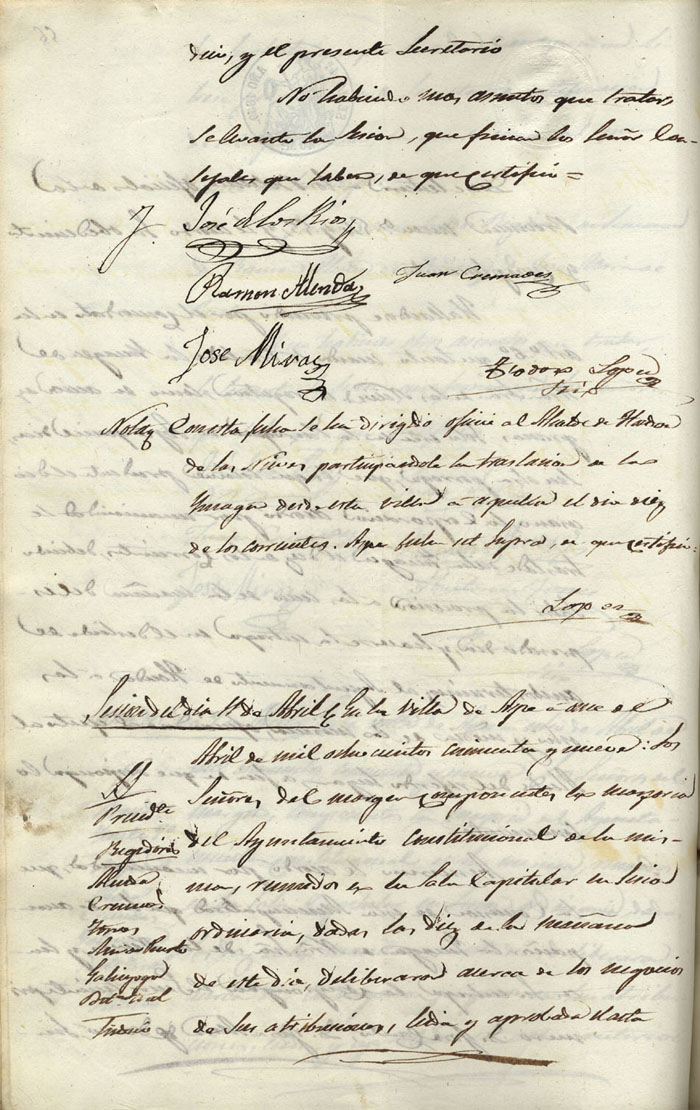 dico, y el presente Secretario
No habiendo mas asuntos que tratar,
se levantó la sesion, que firman los Señores Con-
sejales que saben, de que certifico =
José de los Rios
Ramon Alenda
Juan Cremades
Jose Miras
Teodoro Lopez
Srio
Nota Con esta fecha se ha dirigido oficio al Alcalde de Hondon
de las Nieves participandole la traslacion de la
Ymagen desde esta villa á aquella el dia diez
de los corrientes. Aspe fecha ut supra, de que certifico.
Lopez
Sesion del dia 11 de Abril
En la villa de Aspe á once de
Abril de mil ochocientos cincuenta y nueve: Los
Señores del margen componentes la mayoria
del Ayuntamiento Constitucional de la mis-
ma, reunidos en la Sala Capitular en sesion
ordinaria, dadas las diez de la mañana
de este dia, deliberaron acerca de los negocios
de sus atribuciones, leida y aprobada el acta
Presidte
Regidores
Alenda
Cremades